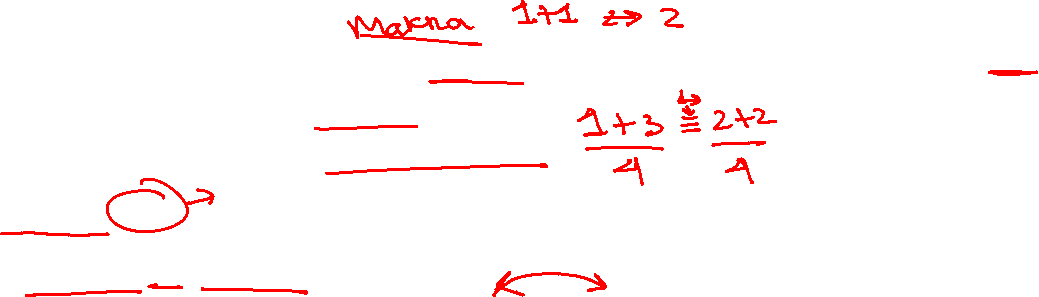 Makna 1+1 ↔ 2
1+3 ≡ 2+2
4 4